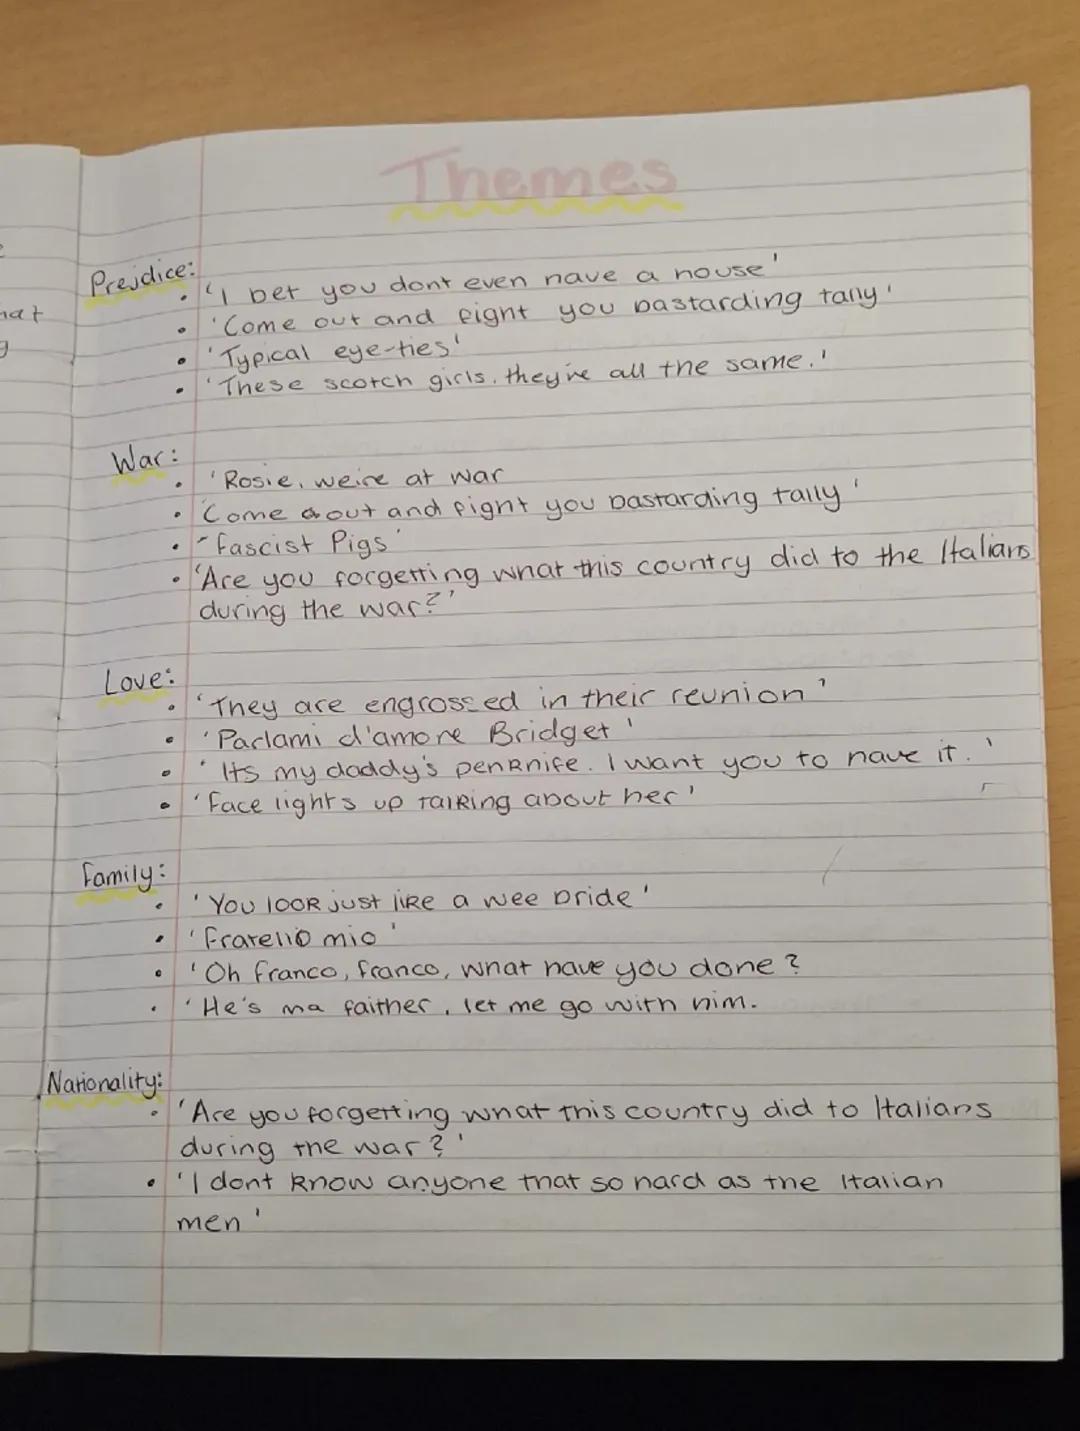 Themes
Prejdice:
'I bet you dont even have a house'
'Come out and fight you bastarding tally'
'Typical eye-ties'
'These scotch girls, they're all the same.'
War:
'Rosie, we're at war
'Come out and fight you bastarding tally'
'Fascist Pigs'
'Are you forgetting what this country did to the Italians
during the war?'
Love:
'They are engrossed in their reunion'
'Parlami d'amore Bridget'
'Its my daddy's penknife. I want you to have it.'
'Face lights up talking about her'
Family:
'You look just like a wee bride'
'Fratello mio'
'Oh Franco, Franco, what have you done?
'He's ma faither, let me go with him.
Nationality:
'Are you forgetting what this country did to Italians
during the war?'
'I dont know anyone that so hard as the Italian
men'